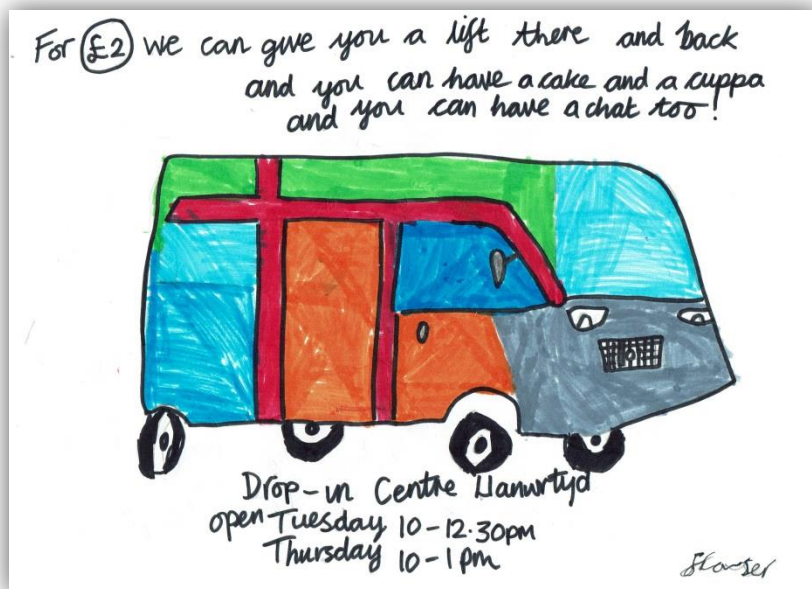 For £2 we can give you a lift there and back
and you can have a cake and a cuppa
and you can have a chat too!
Drop-in Centre Llanwrtyd
open Tuesday 10-12.30pm
Thursday 10-1pm